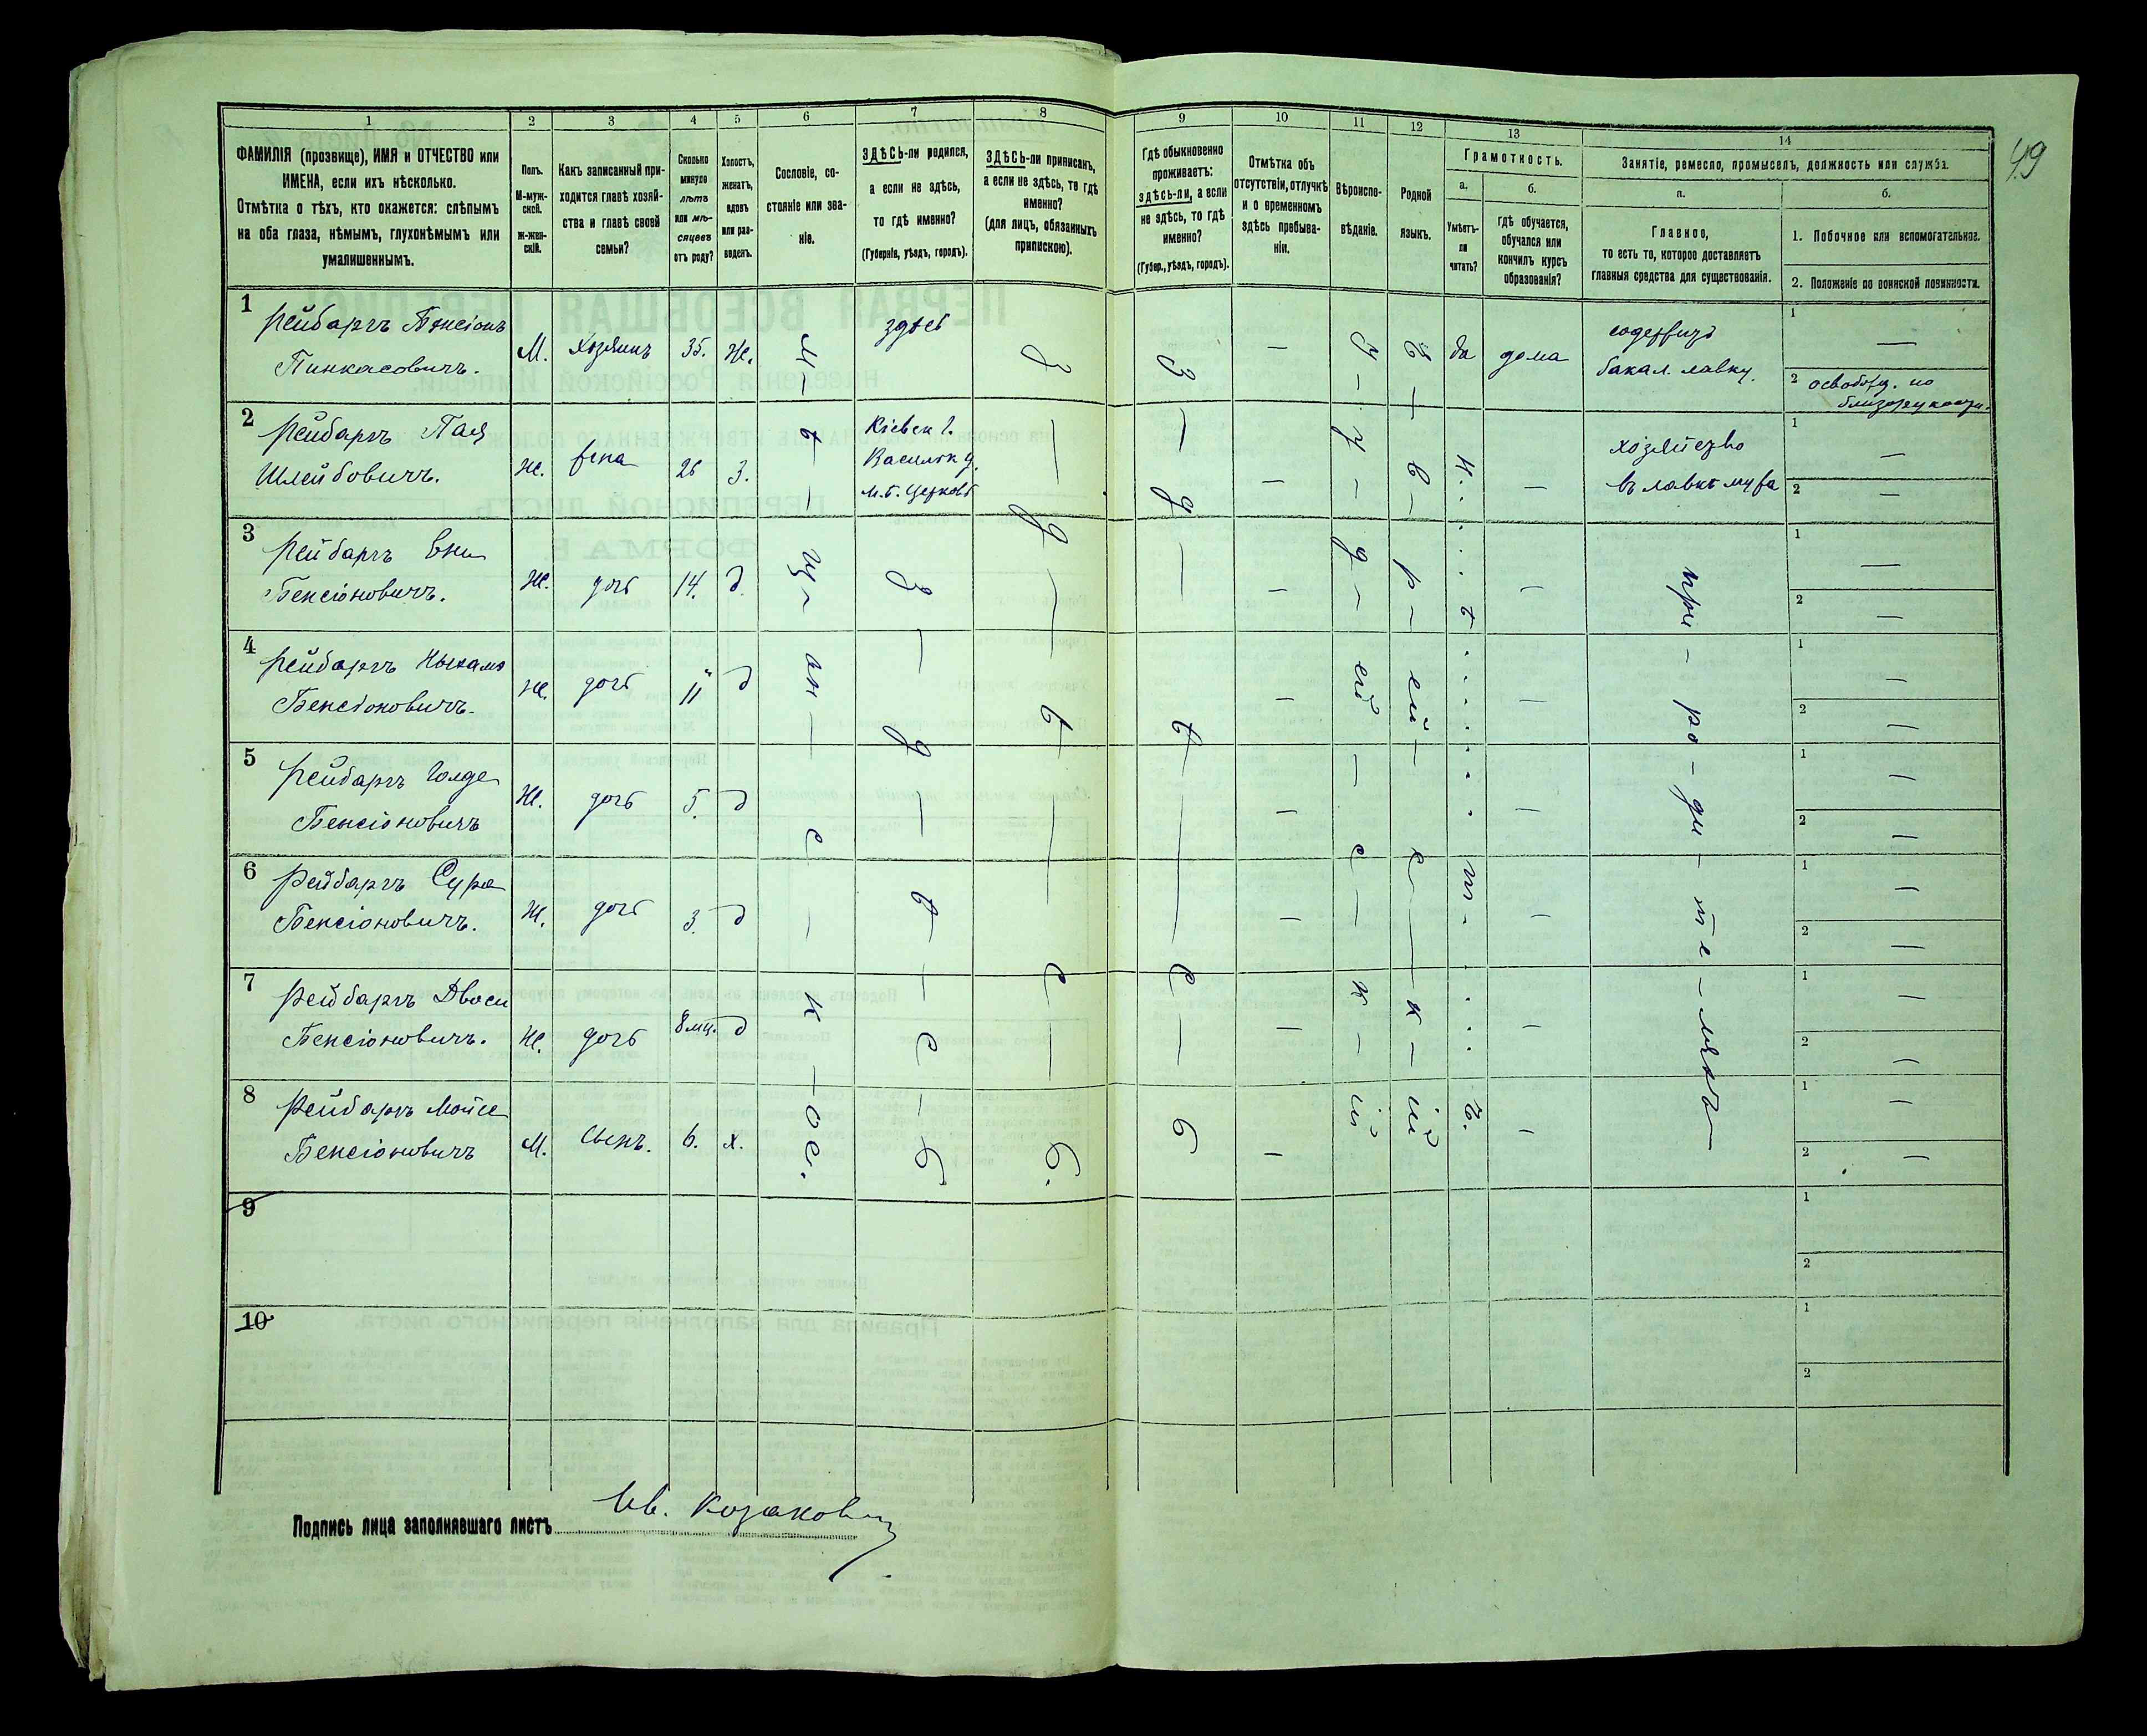 49
1 2 3 4 5 6 7 8 9 10 11 12 13 14
ФАМИЛІЯ (прозвище), ИМЯ и ОТЧЕСТВО или
ИМЕНА, если ихъ нѣсколько.
Отмѣтка о тѣхъ, кто окажется: слѣпымъ
на оба глаза, нѣмымъ, глухонѣмымъ или
умалишеннымъ.
Полъ.
М-муж-
ской.
Ж-жен-
скій.
Какъ записанный при-
ходится главѣ хозяй-
ства и главѣ своей
семьи?
Сколько
минуло
лѣтъ
или мѣ-
сяцевъ
отъ роду?
Холостъ,
женатъ,
вдовъ
или раз-
веденъ.
Сословіе, со-
стояніе или зва-
ніе.
ЗДѢСЬ-ли родился,
а если не здѣсь,
то гдѣ именно?
(Губернія, уѣздъ, городъ).
ЗДѢСЬ-ли приписанъ,
а если не здѣсь, то гдѣ
именно?
(для лицъ, обязанныхъ
припискою).
Гдѣ обыкновенно
проживаетъ:
здѣсь-ли, а если
не здѣсь, то гдѣ
именно?
(Губер., уѣздъ, городъ).
Отмѣтка объ
отсутствіи, отлучкѣ
и о временномъ
здѣсь пребыва-
ніи.
Вѣроиспо-
вѣданіе.
Родной
языкъ.
Грамотность.
а.
Умѣетъ-
ли
читать?
б.
гдѣ обучается,
обучался или
кончилъ курсъ
образованія?
Занятіе, ремесло, промыселъ, должность или служба.
а.
Главное,
то есть то, которое доставляетъ
главныя средства для существованія.
б.
1. Побочное или вспомогательное.
2. Положеніе по воинской повинности.
1 Рейбаргъ Бенсіонъ
Пинкасовичъ. М. Хозяинъ 35. Ж. здѣсь — да дома содержитъ
бакал. лавку. 1 —
2 освобожд. по
близорукости.
2 Рейбаргъ Пая
Шлейбовичъ. Ж. жена 26 З. Кіевск г.
Васильк у.
м. Б. Церковь — — хозяйство
въ лавкѣ мужа 1 —
2 —
3 Рейбаргъ Ени
Бенсіоновичъ. Ж. дочь 14. д. — — 1 —
2 —
4 Рейбаргъ
Бенсіоновичъ. Ж. дочь 11 д — — 1 —
2 —
5 Рейбаргъ Голде
Бенсіоновичъ Ж. дочь 5. д — — 1 —
2 —
6 Рейбаргъ Сура
Бенсіоновичъ. Ж. дочь 3. д — — 1 —
2 —
7 Рейбаргъ Двоси
Бенсіоновичъ. Ж. дочь 8 мц. д — — 1 —
2 —
8 Рейбаргъ Мойсе
Бенсіоновичъ М. Сынъ. 6. х. — — 1 —
2 —
м — ѣ — щ — ан — е — к — ое.
з — д — ѣ — с — ь
з — д — ѣ — с — ь.
з — д — ѣ — с — ь
і — у — д — ей — с — к — ій
е — в — р — ей — с — к — ій
н . . . ѣ . . . т . . . ъ.
при — ро — ди — те — ляхъ
9 1
2
10 1
2
Подпись лица заполнявшаго листъ Ив. Козакови